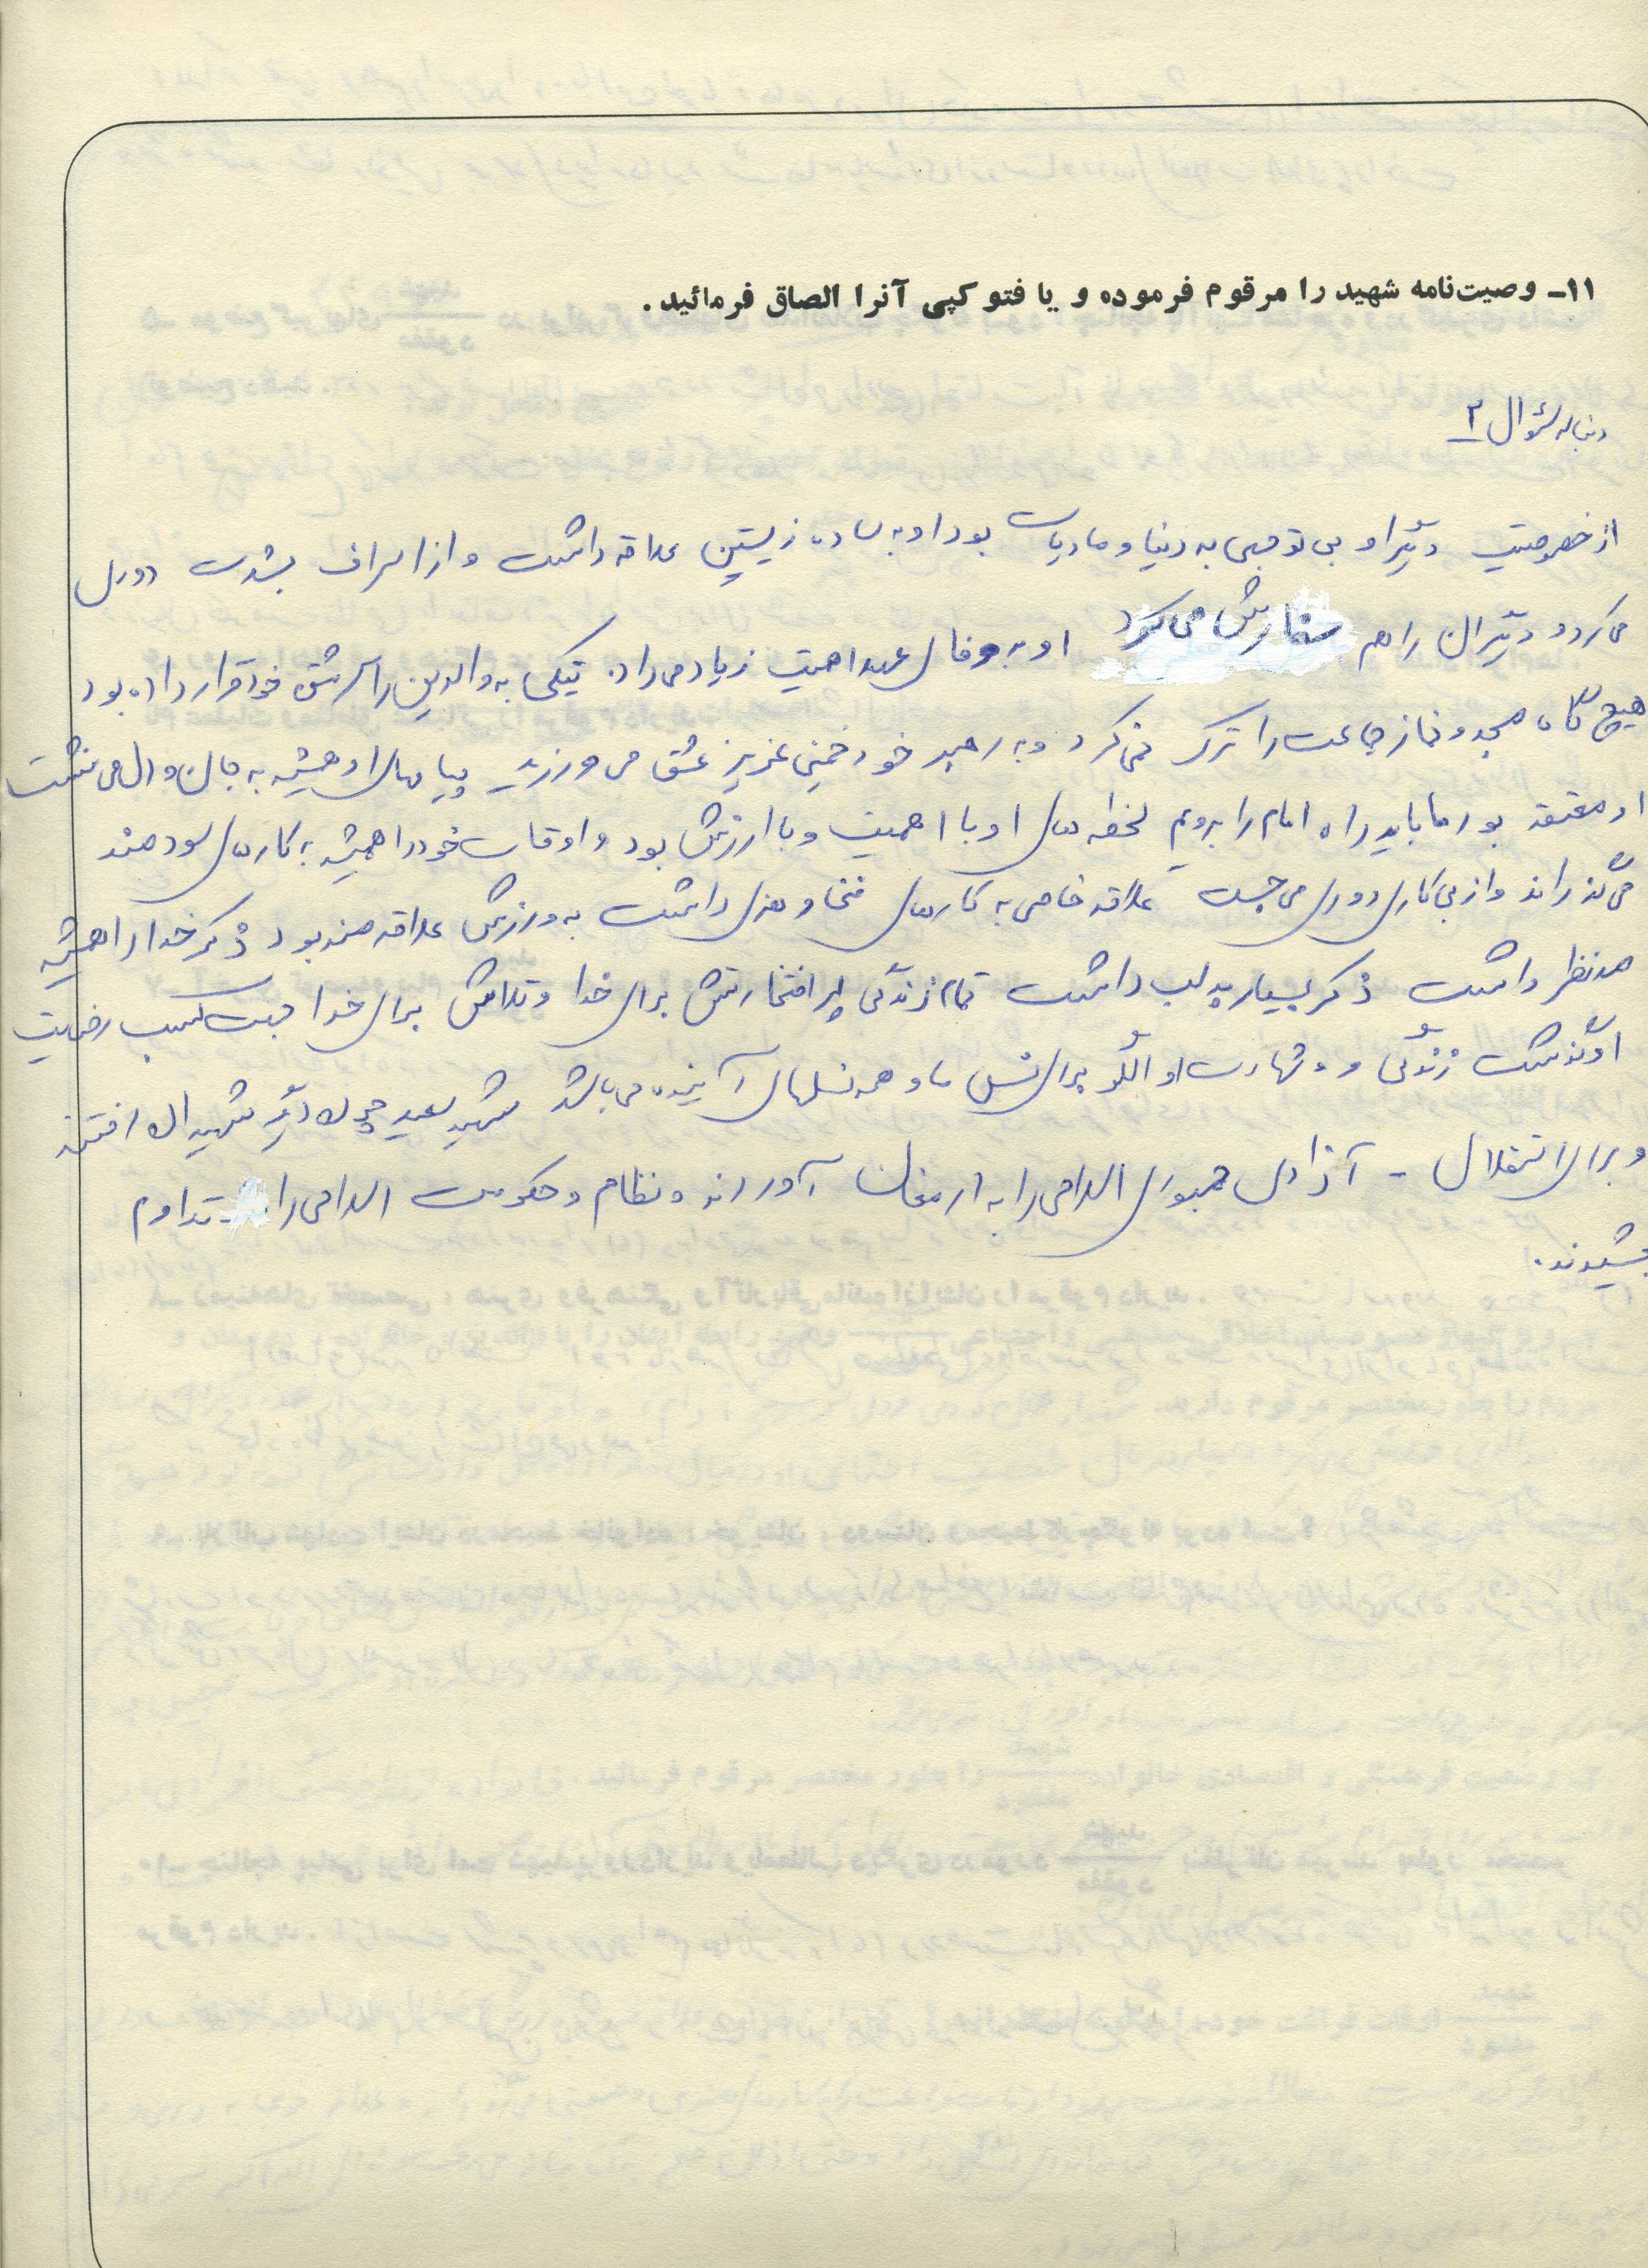 ۱۱- وصیت‌نامه شهید را مرقوم فرموده و یا فتوکپی آنرا الصاق فرمائید.
دنباله سئوال ۲
از خصوصیت دیگر او بی توجهی به دنیا و مادیات بود او به ساده زیستن علاقه داشت و از اسراف بشدت دوری
می کرد و دیگران را هم سفارش می کرد او به وفای عهد اهمیت زیاد می داد. نیکی به والدین را سرمشق خود قرار داده بود
هیچ گاه مسجد و نماز جماعت را ترک نمی کرد و به رهبر خود خمینی عزیز عشق می ورزید پیامهای او همیشه به جان و دل می نشست
او معتقد بود ما باید راه امام را برویم لحظه های او با اهمیت و با ارزش بود و اوقات خود را همیشه به کارهای سودمند
می گذراند و از بی کاری دوری می جست علاقه خاصی به کارهای فنی و هنری داشت به ورزش علاقه مند بود ذکر خدا را همیشه
مد نظر داشت ذکر بسیار بر لب داشت تمام زندگی پر افتخارتش برای خدا و تلاش برای خدا جهت کسب رضایت
او گذشت زندگی و شهادت او الگو برای نسل ما و همه نسلهای آینده می باشد شهید سعید چون دیگر شهیدان
و برای استقلال - آزادی جمهوری اسلامی را به ارمغان آوردند و نظام و حکومت اسلامی را تداوم
بخشیدند.